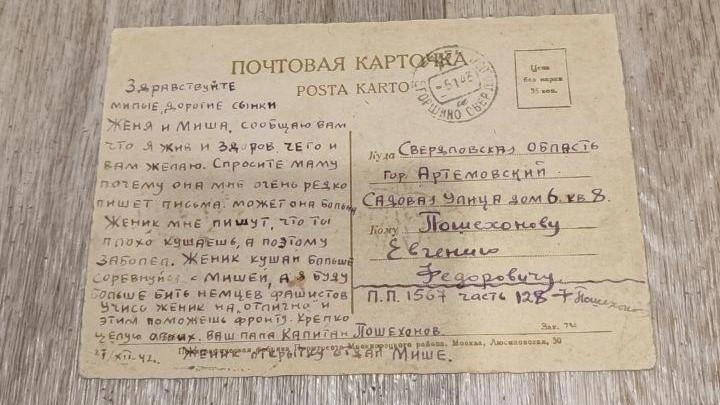 ПОЧТОВАЯ КАРТОЧКА
POSTA KARTO
-5 1 43
ЕГОРШИНО СВЕРД
Цена
без марки
35 коп.
Здравствуйте
милые, дорогие сынки
Женя и Миша. Сообщаю вам
что я жив и здоров, чего и
вам желаю. Спросите маму
почему она мне очень редко
пишет письма. Может она больна
Женик мне пишут, что ты
плохо кушаешь, а поэтому
заболел. Женик кушай больше
соревнуйся с Мишей, а я буду
больше бить немцев фашистов
учись Женик на отлично и
этим поможешь фронту. Крепко
целую обоих. Ваш папа капитан Пошехонов.
27/XII-42. Женик открытку отдал Мише.
Куда Свердловская область
гор Артемовский
Садовая улица дом 6. кв 8.
Кому Пошехонову
Евгению
Федоровичу
П.П. 1567 часть 128 Пошехоно
Зак.
Москва, Люсиновская, 30